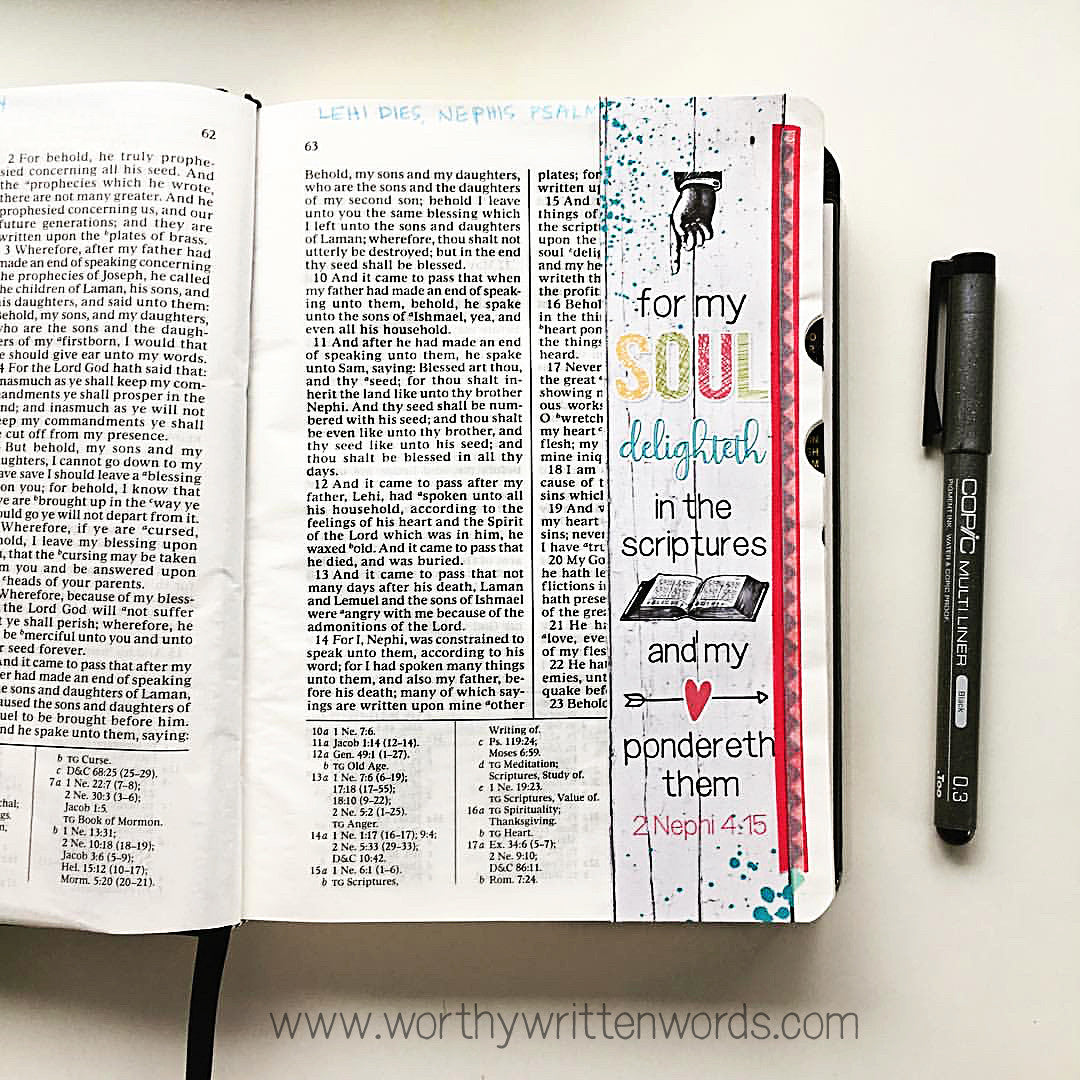 62
2 For behold, he truly prophe-
sied concerning all his seed. And
the ᵃprophecies which he wrote,
there are not many greater. And he
prophesied concerning us, and our
future generations; and they are
written upon the ᵇplates of brass.
3 Wherefore, after my father had
made an end of speaking concerning
the prophecies of Joseph, he called
the children of Laman, his sons, and
his daughters, and said unto them:
Behold, my sons, and my daughters,
who are the sons and the daugh-
ers of my ᵃfirstborn, I would that
e should give ear unto my words.
4 For the Lord God hath said that:
nasmuch as ye shall keep my com-
andments ye shall prosper in the
nd; and inasmuch as ye will not
eep my commandments ye shall
cut off from my presence.
But behold, my sons and my
ughters, I cannot go down to my
ave save I should leave a ᵃblessing
on you; for behold, I know that
ye are ᵇbrought up in the ᶜway ye
ould go ye will not depart from it.
Wherefore, if ye are ᵃcursed,
hold, I leave my blessing upon
, that the ᵇcursing may be taken
m you and be answered upon
ᶜheads of your parents.
Wherefore, because of my bless-
the Lord God will ᵃnot suffer
t ye shall perish; wherefore, he
be ᵇmerciful unto you and unto
r seed forever.
And it came to pass that after my
er had made an end of speaking
e sons and daughters of Laman,
aused the sons and daughters of
uel to be brought before him.
nd he spake unto them, saying:
b TG Curse.
c D&C 68:25 (25–29).
7a 1 Ne. 22:7 (7–8);
2 Ne. 30:3 (3–6);
Jacob 1:5.
TG Book of Mormon.
b 1 Ne. 13:31;
2 Ne. 10:18 (18–19);
Jacob 3:6 (5–9);
Hel. 15:12 (10–17);
Morm. 5:20 (20–21).
LEHI DIES, NEPHIS PSALM
63
Behold, my sons and my daughters,
who are the sons and the daughters
of my second son; behold I leave
unto you the same blessing which
I left unto the sons and daughters
of Laman; wherefore, thou shalt not
utterly be destroyed; but in the end
thy seed shall be blessed.
10 And it came to pass that when
my father had made an end of speak-
ing unto them, behold, he spake
unto the sons of ᵃIshmael, yea, and
even all his household.
11 And after he had made an end
of speaking unto them, he spake
unto Sam, saying: Blessed art thou,
and thy ᵃseed; for thou shalt in-
herit the land like unto thy brother
Nephi. And thy seed shall be num-
bered with his seed; and thou shalt
be even like unto thy brother, and
thy seed like unto his seed; and
thou shalt be blessed in all thy
days.
12 And it came to pass after my
father, Lehi, had ᵃspoken unto all
his household, according to the
feelings of his heart and the Spirit
of the Lord which was in him, he
waxed ᵇold. And it came to pass that
he died, and was buried.
13 And it came to pass that not
many days after his death, Laman
and Lemuel and the sons of Ishmael
were ᵃangry with me because of the
admonitions of the Lord.
14 For I, Nephi, was constrained to
speak unto them, according to his
word; for I had spoken many things
unto them, and also my father, be-
fore his death; many of which say-
ings are written upon mine ᵃother
plates; for
written up
15 And
things of
the scrip
upon the
soul ᶜdelig
and my he
writeth th
the profit
16 Behol
in the thi
ᵇheart pon
the things
heard.
17 Never
the great
showing m
ous works
O ᵇwretch
my heart
flesh; my
mine iniq
18 I am
cause of t
sins which
19 And v
my heart
sins; never
I have ᵃtru
20 My Go
he hath le
flictions i
hath prese
of the grea
21 He ha
ᵃlove, eve
of my fles
22 He hat
emies, unt
quake bef
23 Behold
10a 1 Ne. 7:6.
11a Jacob 1:14 (12–14).
12a Gen. 49:1 (1–27).
b TG Old Age.
13a 1 Ne. 7:6 (6–19);
17:18 (17–55);
18:10 (9–22);
2 Ne. 5:2 (1–25).
TG Anger.
14a 1 Ne. 1:17 (16–17); 9:4;
2 Ne. 5:33 (29–33);
D&C 10:42.
15a 1 Ne. 6:1 (1–6).
b TG Scriptures,
Writing of.
c Ps. 119:24;
Moses 6:59.
d TG Meditation;
Scriptures, Study of.
e 1 Ne. 19:23.
TG Scriptures, Value of.
16a TG Spirituality;
Thanksgiving.
b TG Heart.
17a Ex. 34:6 (5–7);
2 Ne. 9:10;
D&C 86:11.
b Rom. 7:24.
for my
SOUL
delighteth
in the
scriptures
and my
pondereth
them
2 Nephi 4:15
COPIC MULTILINER
PIGMENT INK, WATER & COPIC PROOF
Black
0.3
.Too
www.worthywrittenwords.com